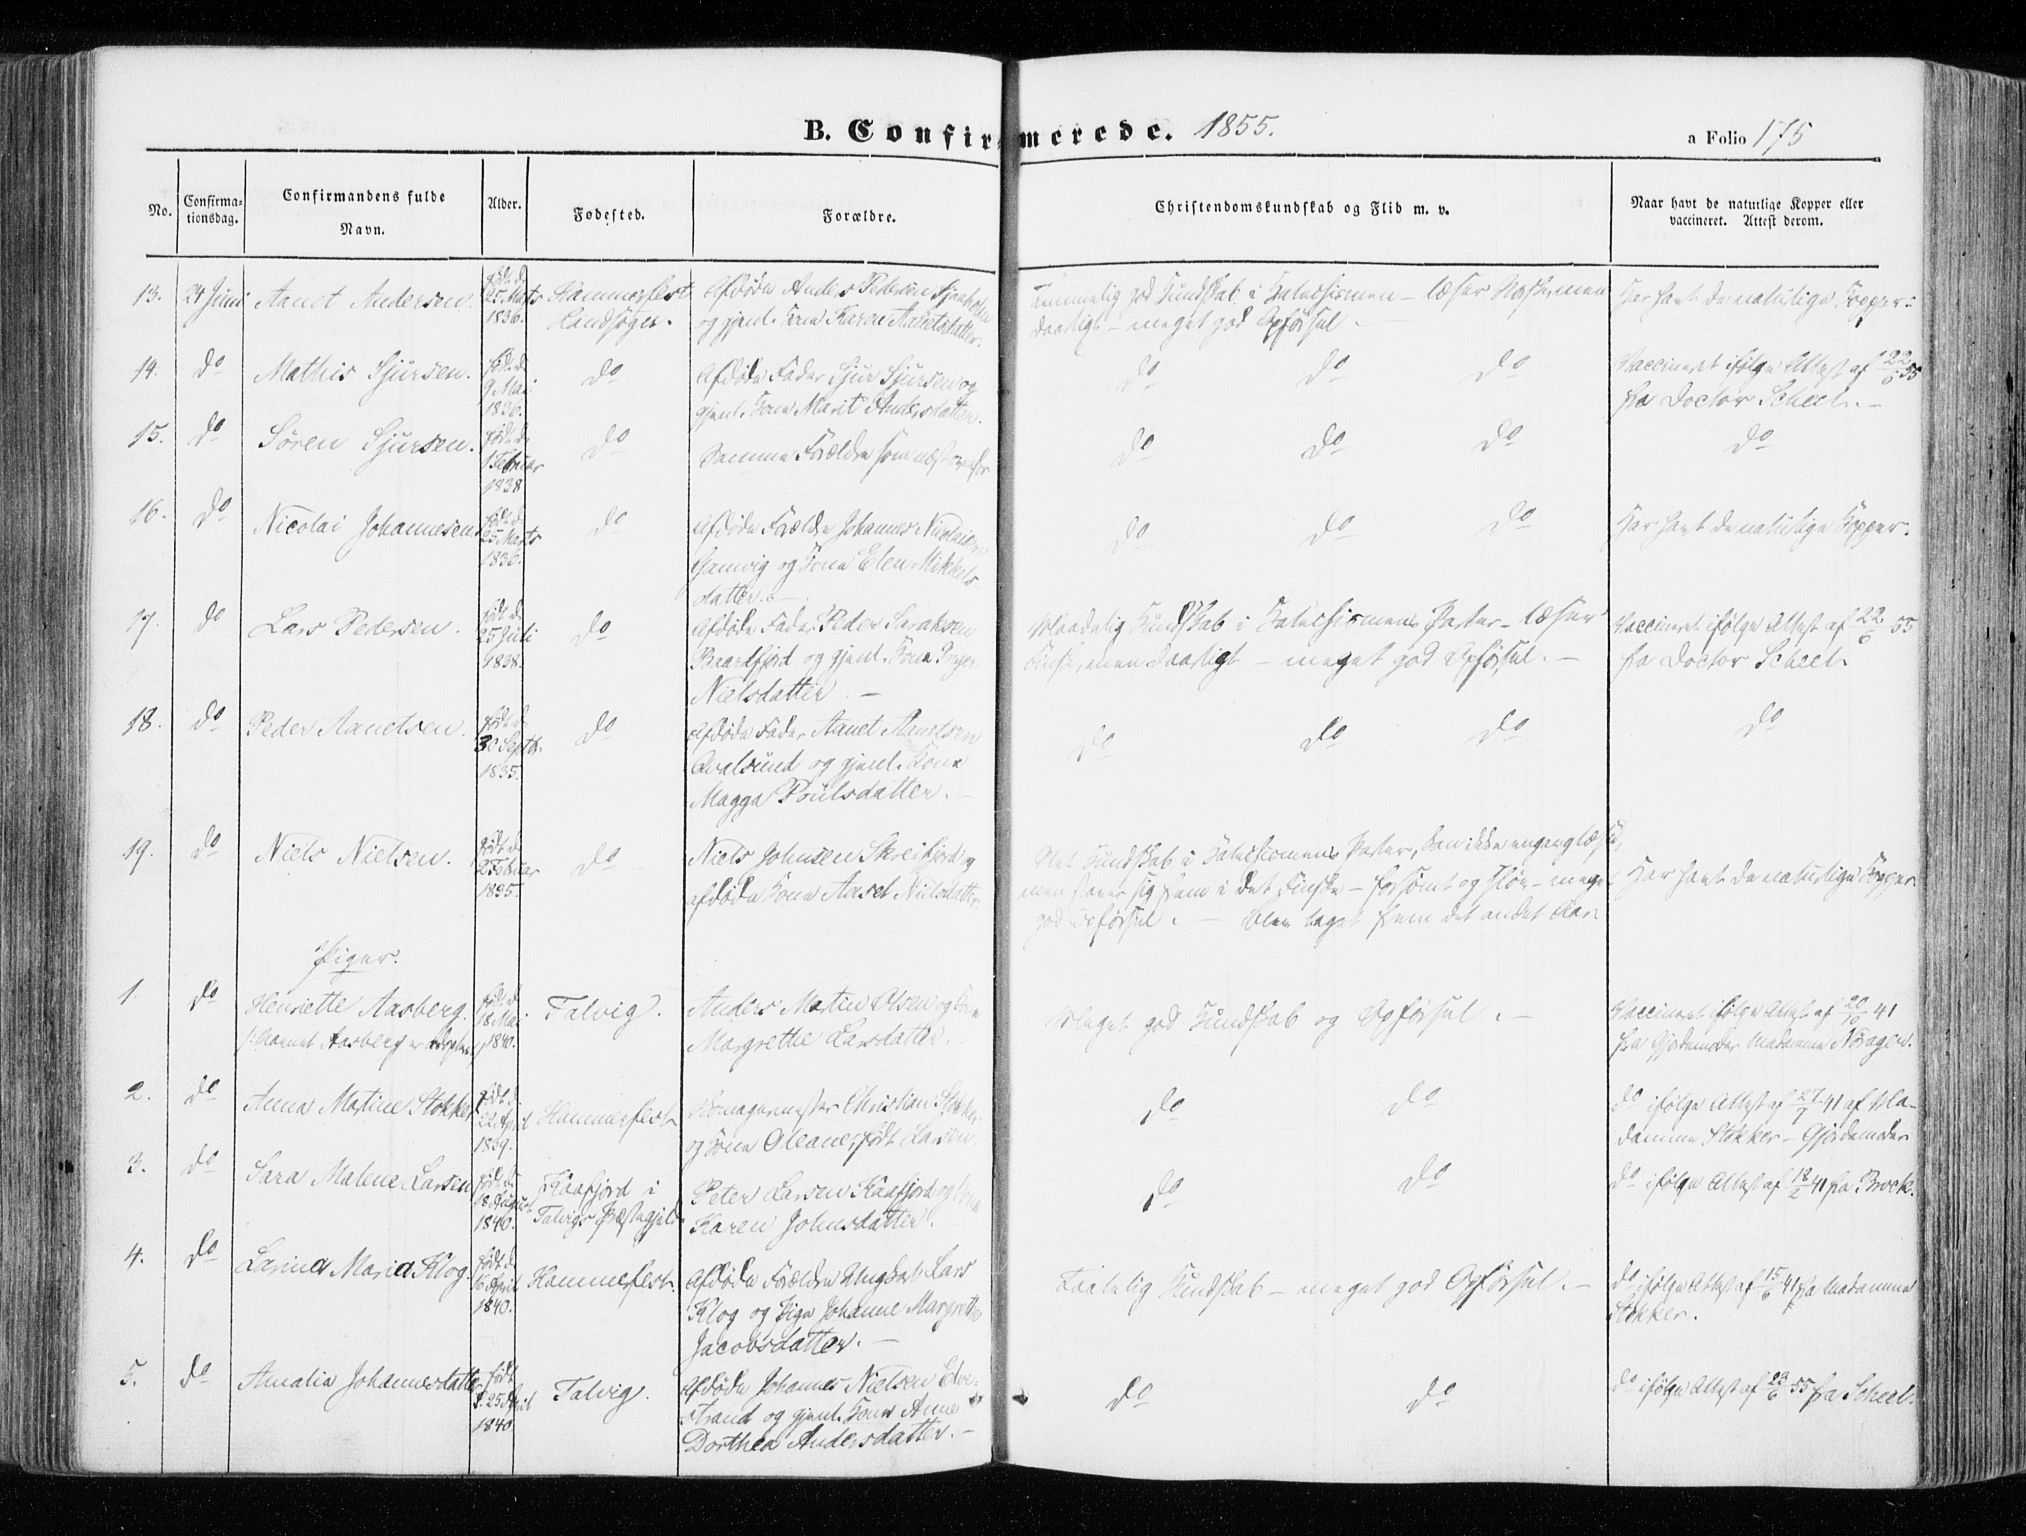 B. Confirmerede. 1855.
a Folio 175
No.
Confirma-
tionsdag.
Confirmandens fulde
Navn.
Alder.
Fødested.
Forældre.
Christendomskundskab og Flid m. v.
Naar havt de naturlige Kopper eller
vaccineret. Attest derom.
13. 24 Juni Aanet Andersen. født d. 25 Marts 1836. Hammerfest Landsogn.
Afdøde Anders Pedersen
og gjenl. Kone Karen
Temmelig god Kundskab i Katechismen – læser Norsk, men
daarligt – meget god Opførsel.
Har havt de naturlige Kopper.
14. do Mathis Sjursen. født d. 9 Mai 1836. do
Afdøde Fader Sjur Sjursen og
gjenl. Kone Marit Andersdatter.
do do do
Vaccineret ifølge Attest af 22/6 55
fra Doctor Scheel. –
15. do Søren Sjursen. født d. 1 Februar 1838 do
Samme Forældre som næst ovenfor
do do do
do
16. do Nicolai Johannesen født d. 25 Marts 1836. do
Afdøde Forældre Johannes Nicolaisen
og Kone Elen Mikkels-
datter. –
do do do
Har havt de naturlige Kopper.
17. do Lars Pedersen. født d. 25 Juli 1838. do
Afdøde Fader Peder Saraksen
Baardfjord og gjenl. Kone Inger
Nielsdatter. –
Maadelig Kundskab i Katechismens Parter – læser
Finsk, men daarligt – meget god Opførsel. –
Vaccineret ifølge Attest af 22/6 55
fra Doctor Scheel.
18. do Peder Aanetsen. født d. 30 Septbr. 1835. do
Afdøde Fader Aanet Aanetsen
Qvalsund og gjenl. Kone
Magga Poulsdatter. –
do do do
do
19. do Niels Nielsen. født d. 2 Februar 1835. do
Niels Johnsen Skreifjord og
afdøde Kone Nielsdatter.
Kundskab i Katechismens Parter, kan ikke engang læse,
men staver sig frem i det Finske – forsømt og sløv – meget
god Opførsel. – Blev taget frem det andet Aar
Har havt de naturlige Kopper
Piger.
1. do Henriette Aasberg. født d. 18 Mai 1840. Talvig.
Navnet Aasberg er
Anders Martin Olsen og Kone
Margrethe Larsdatter. –
Meget god Kundskab og Opførsel. –
Vaccineret ifølge Attest af 20/10 41
fra Gjordemoder Madamme
2. do Anna Martine Stokker født d. 22 April 1839. Hammerfest
Christian Stokker
og Kone Oleane, født Larsen
do do
do ifølge Attest af 27/7 41 af Ma-
damme Stokker – Gjordemoder
3. do Sara Malene Larsen født d. 18 August 1840. Kaafjord i
Talvigs Præstegjeld
Peter Larsen Kaafjord og Kone
Karen Johnsdatter.
do do
do ifølge Attest af 18/2 41 fra Brock.
4. do Larina Maria Klog. født d. 16 April 1840. Hammerfest.
Afdøde Forældre Ungkarl Lars
Klog og Pige Johanne Margrethe
Jacobsdatter. –
Taalelig Kundskab – meget god Opførsel. –
do ifølge Attest af 15/6 41 fra Madamme
Stokker.
5. do Amalia Johannesdatter født d. 25 April 1840 Talvig.
Afdøde Johannes Nielsen Elve-
strand og gjenl. Kone Anne
Dorthea Andersdatter. –
do do
do ifølge Attest af 23/6 55 fra Scheel.